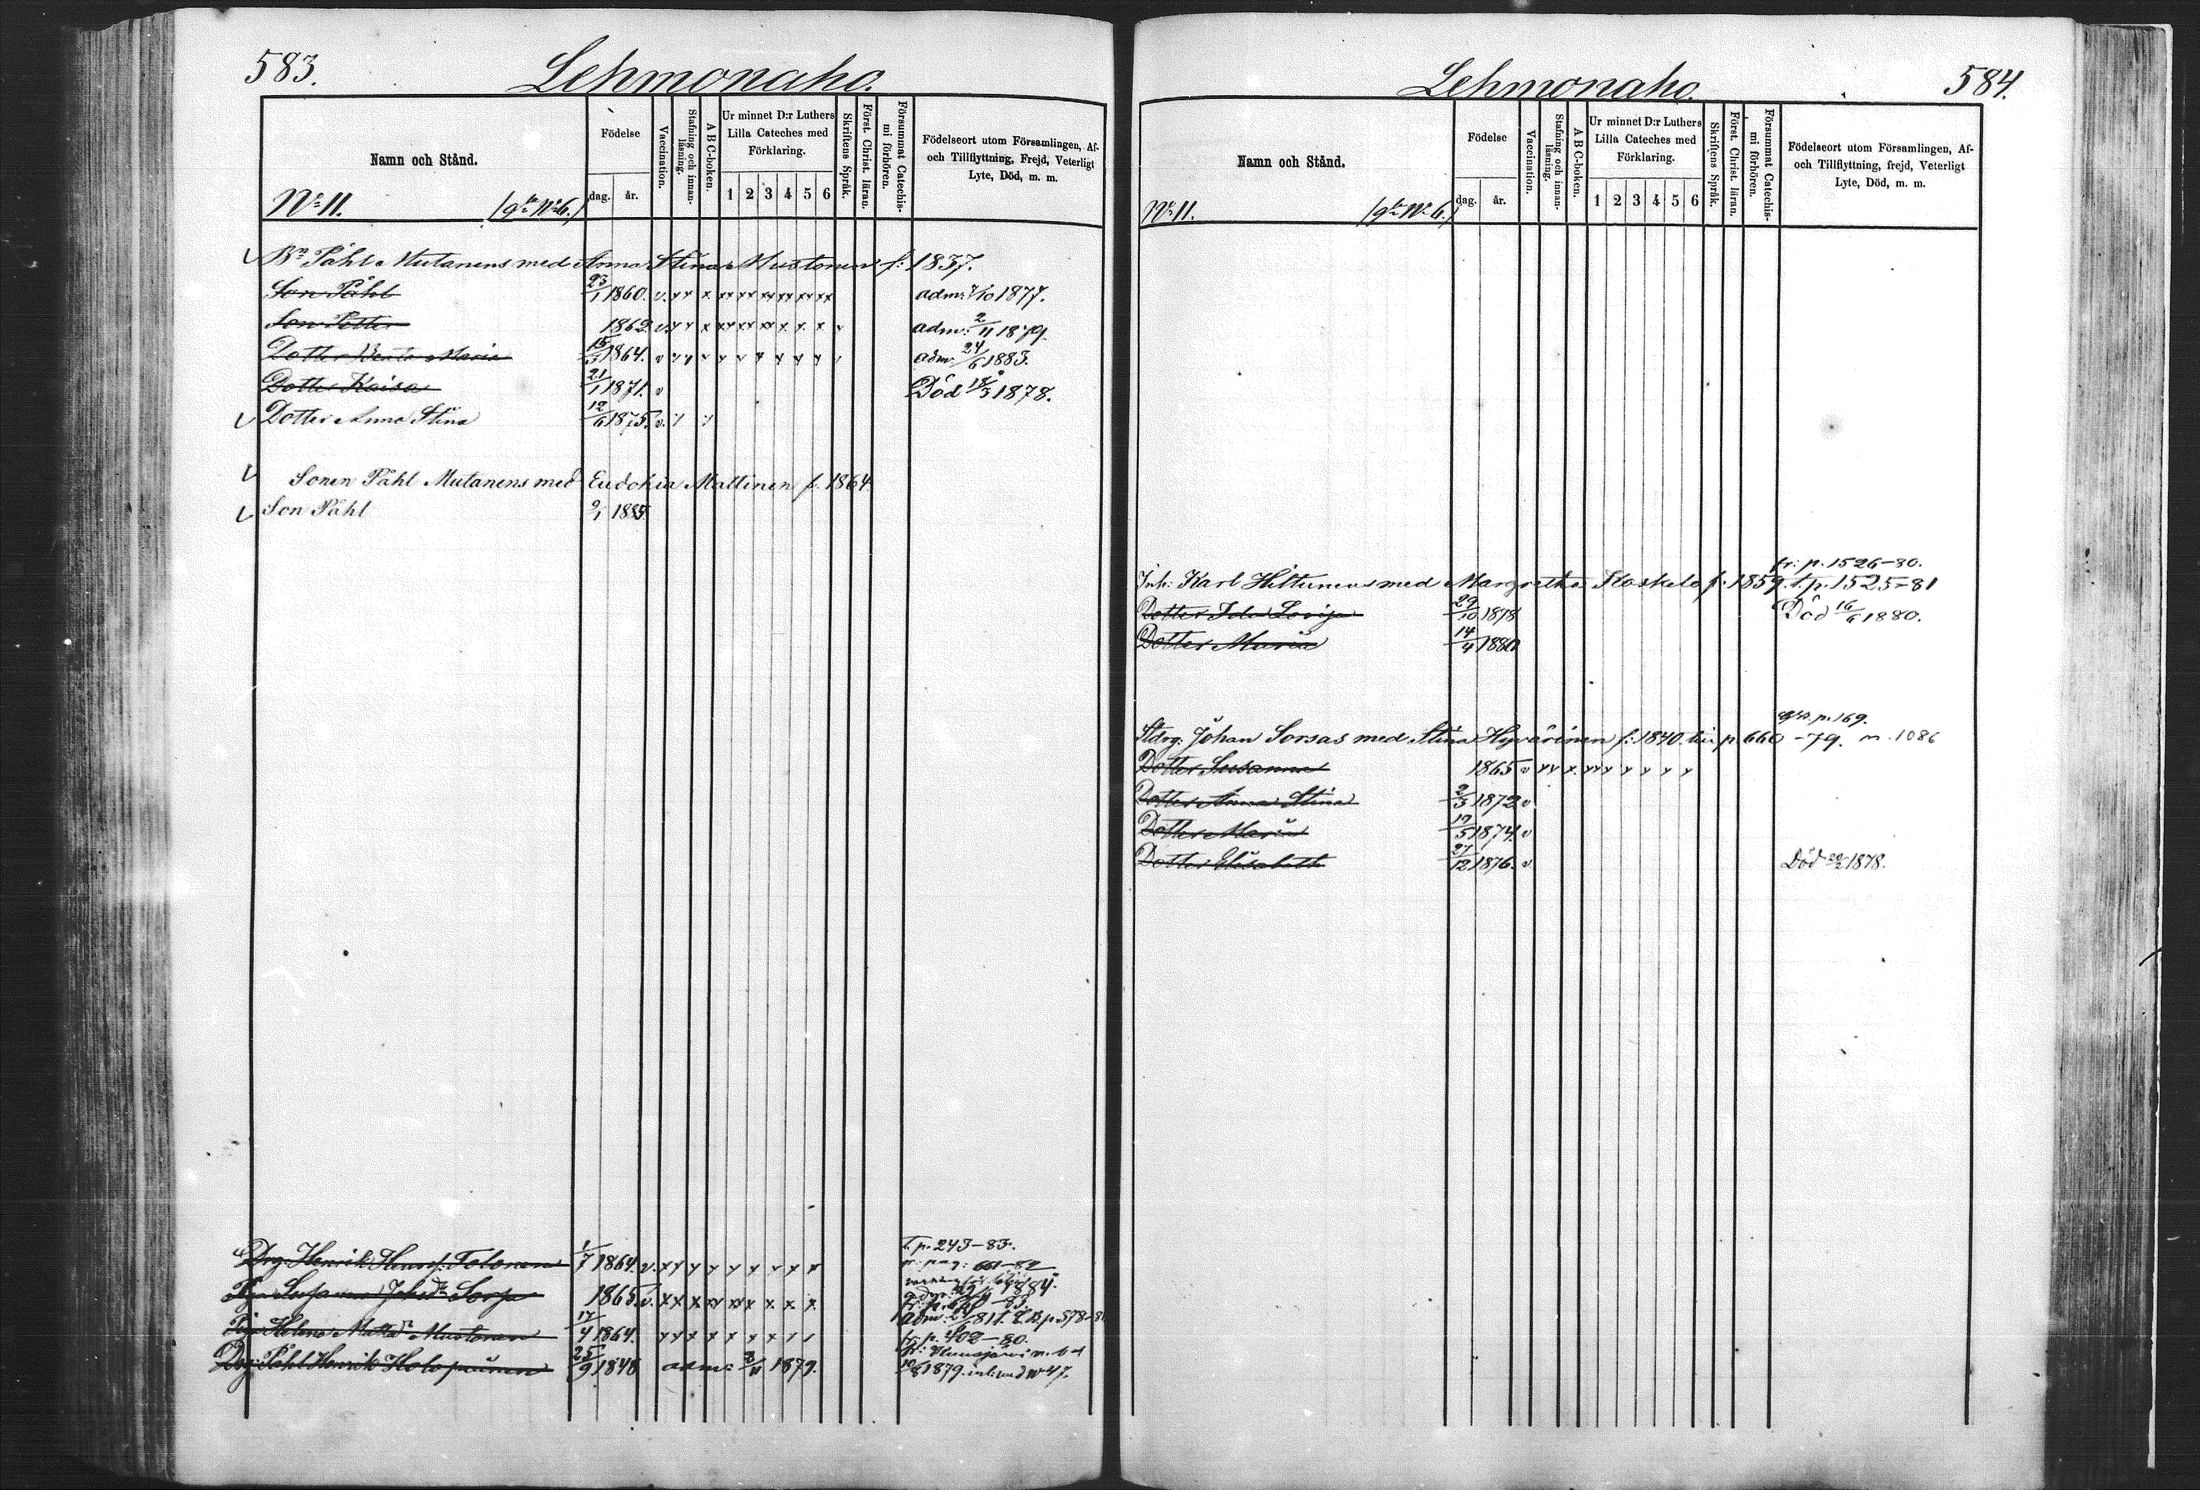 583.
Lehmonaho.
Namn och Stånd.
Födelse
dag.
år.
Vaccination.
Stafning och innan-läsning.
A B C-boken.
Ur minnet D:r Luthers
Lilla Cateches med
Förklaring.
1 2 3 4 5 6
Skriftens Språk.
Först. Christ. läran.
Försummat Catechis-mi förhören.
Födelseort utom Församlingen, Af-
och Tillflyttning, Frejd, Veterligt
Lyte, Död, m. m.
No 11. (g:la No 6.)
Bn Påhl Mutanens med Anna Stina Mustonen f: 1837.
Son Påhl 23/1 1860. v. xx x xx xx xx xx xx xx adm: 7/10 1877.
Son Petter 1862. v. x x x xx xx xx x x x v adm: 2/11 1879.
Dotter Maria 1864. v adm: 24/6 1883.
Dotter Kaisa 21/1 1871. v Död 18/3 1878.
Dotter Anna Stina 12/6 1875. v.
Sonen Påhl Mutanens med Eudokia Mattinen f. 1864.
Son Påhl 2/1 1885.
Drg. Henrik Tolonen 1/7 1864. v. x x x x x x x x x t. p. 243-83.
Susanna Sorsa 1865. v.
Helena Matts dr Mustonen 17/4 1864. fr. p. 402-80.
Drg. Påhl Henrik Holopainen 25/9 1848 adm: 1879. 1879.
584.
Lehmonaho.
Namn och Stånd.
Födelse
dag.
år.
Vaccination.
Stafning och innan-läsning.
A B C-boken.
Ur minnet D:r Luthers
Lilla Cateches med
Förklaring.
1 2 3 4 5 6
Skriftens Språk.
Först. Christ. läran.
Försummat Catechis-mi förhören.
Födelseort utom Församlingen, Af-
och Tillflyttning, frejd, Veterligt
Lyte, Död, m. m.
No 11. (g:la No 6.)
fr: p. 1526-80.
Inh: Karl Hiltunens med Margretha Koskelo f: 1859. t. p. 1525-81
Dotter Ida Lovisa 29/10 1878 Död 16/6 1880.
Dotter Maria 14/4 1880
p. 169.
Stdrg. Johan Sorsas med Stina Hyvärinen f: 1840. p. 660 -79. n. 1086
Dotter Susanna 1865 v xx x xx x x x x x
Dotter Anna Stina 2/3 1872 v
Dotter Maria 17/5 1874. v
Dotter Elisabeth 27/12 1876. v. Död 1878.